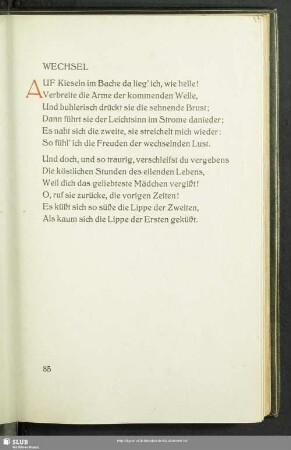 WECHSEL
AUF Kieseln im Bache da lieg' ich, wie helle!
Verbreite die Arme der kommenden Welle,
Und buhlerisch drückt sie die sehnende Brust;
Dann führt sie der Leichtsinn im Strome danieder;
Es naht sich die zweite, sie streichelt mich wieder:
So fühl' ich die Freuden der wechselnden Lust.
Und doch, und so traurig, verschleifst du vergebens
Die köstlichen Stunden des eilenden Lebens,
Weil dich das geliebteste Mädchen vergißt!
O, ruf sie zurücke, die vorigen Zeiten!
Es küßt sich so süße die Lippe der Zweiten,
Als kaum sich die Lippe der Ersten geküßt.
85
SLUB